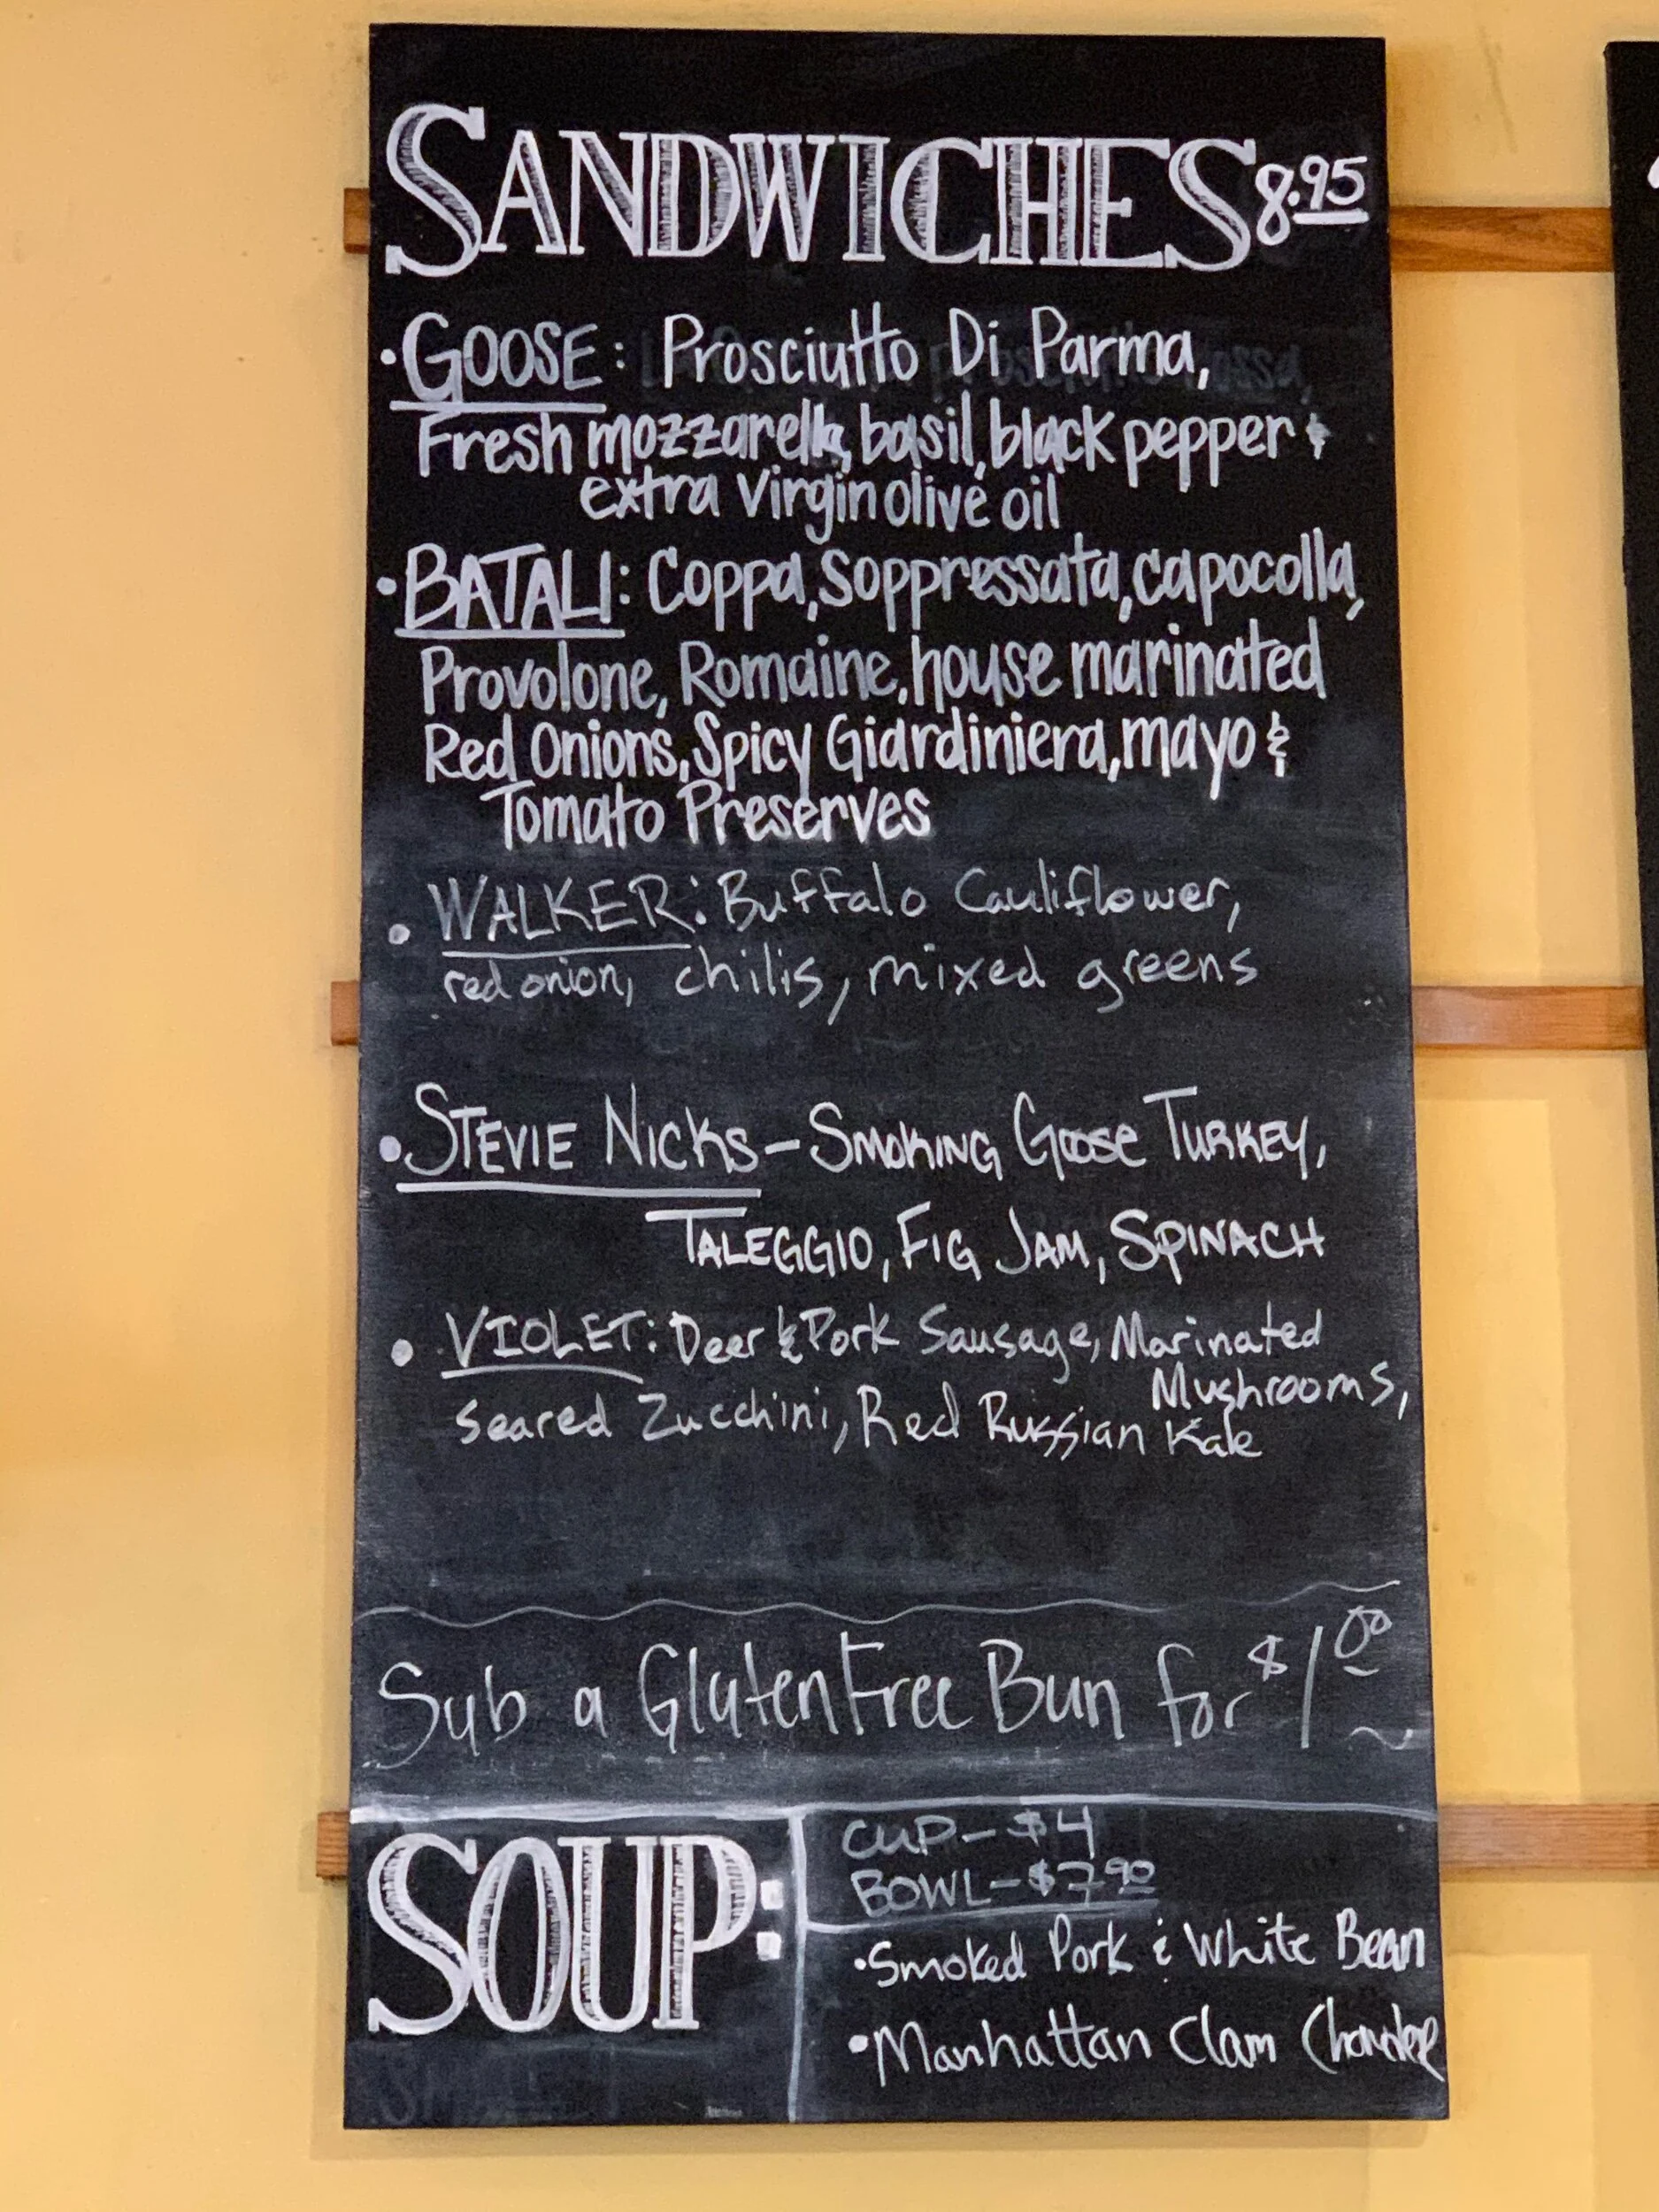 SANDWICHES 8.95
• GOOSE: Prosciutto Di Parma,
Fresh mozzarella, basil, black pepper &
extra Virgin olive oil
• BATALI: Coppa, Soppressata, capocolla,
Provolone, Romaine, house marinated
Red Onions, Spicy Giardiniera, mayo &
Tomato Preserves
• WALKER: Buffalo Cauliflower,
red onion, chilis, mixed greens
• STEVIE NICKS – SMOKING Goose TURKEY,
TALEGGIO, FIG JAM, SPINACH
• VIOLET: Deer & Pork Sausage, Marinated
Mushrooms,
Seared Zucchini, Red Russian Kale
Sub a Gluten Free Bun for $1.00
SOUP:
CUP – $4
BOWL – $7.90
• Smoked Pork & White Bean
• Manhattan Clam Chowder